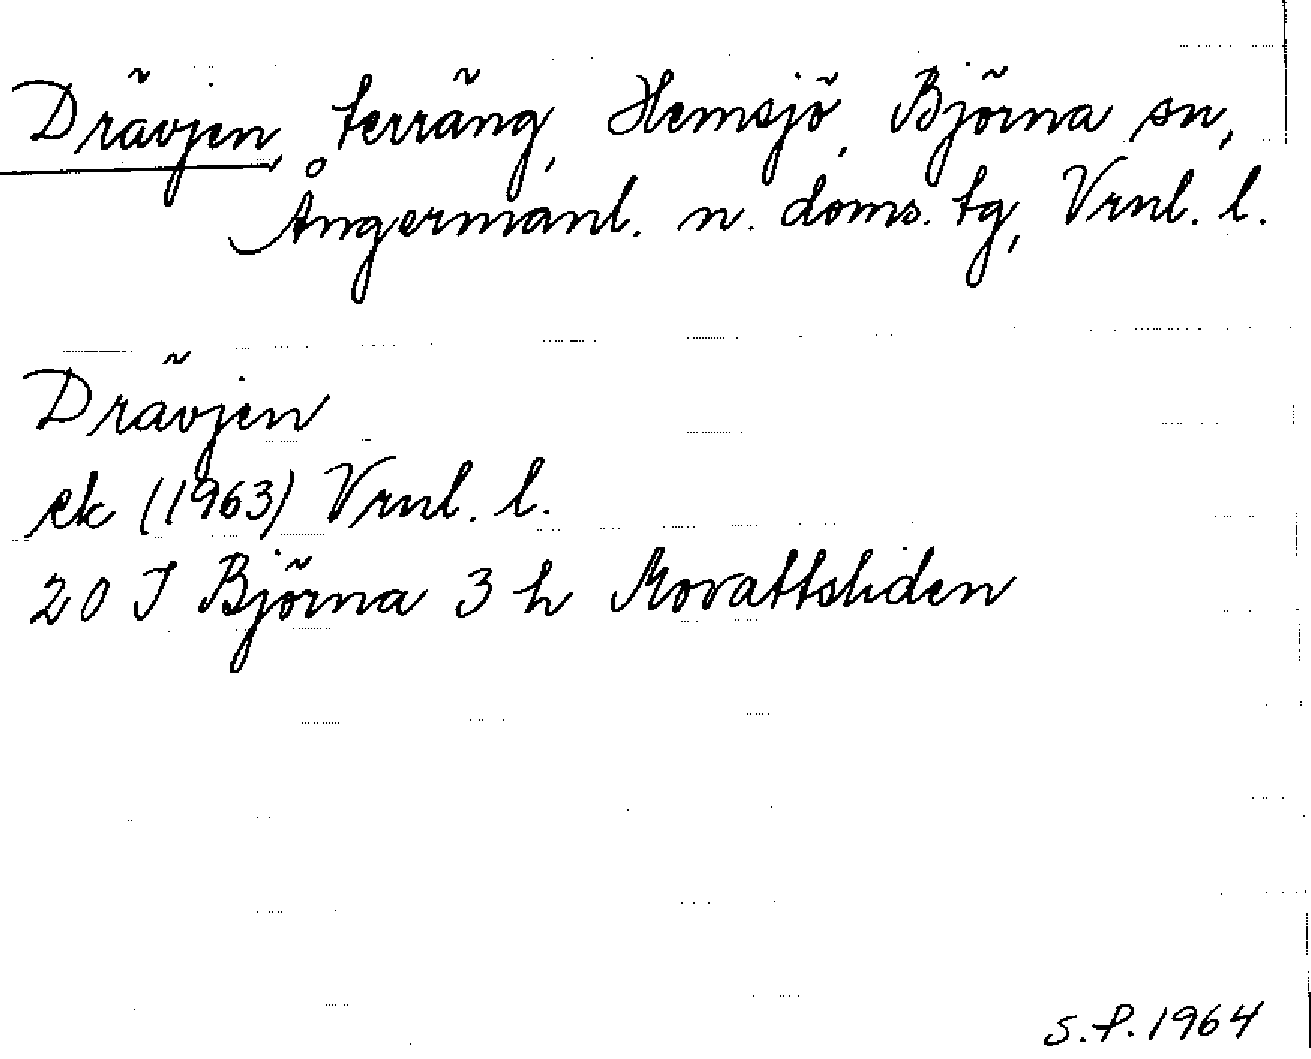 Drävjen, terräng, Hemsjö, Björna sn,
Ångermanl. n. doms. tg, Vrnl. l.
Drävjen
ek (1963) Vrnl. l.
20 J Björna 3 h Movattsliden
S.P. 1964